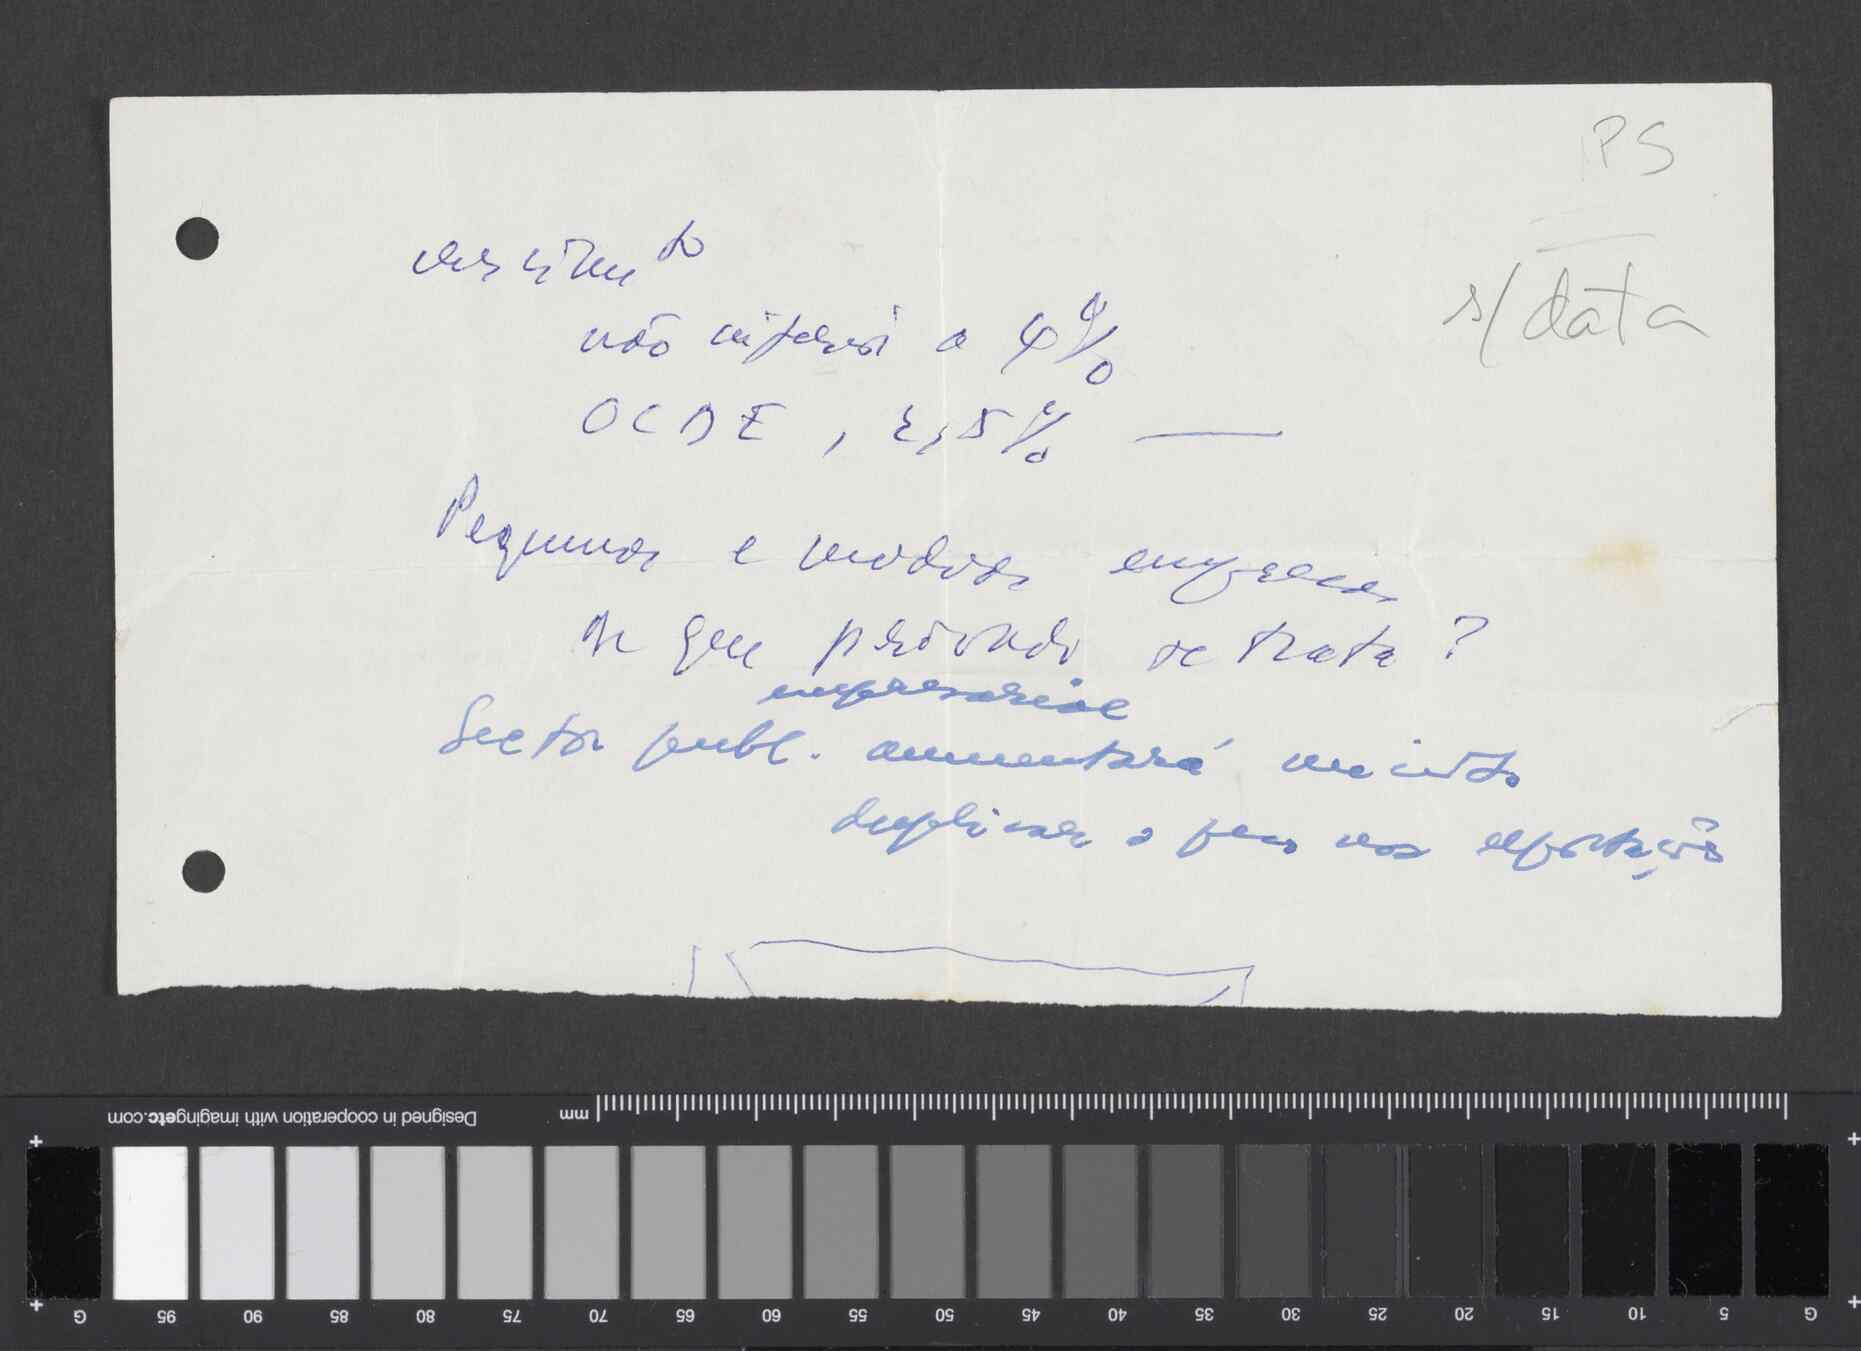 PS
s/data
crescimto
não inferior a 4%
OCDE, 2,5% —
Pequenas e médias empresas
De que privado se trata?
empresarial
Sector publ. aumentará muito
duplicar o peso nas exportações
Designed in cooperation with imagingetc.com
mm
G 95 90 85 80 75 70 65 60 55 50 45 40 35 30 25 20 15 10 5 G